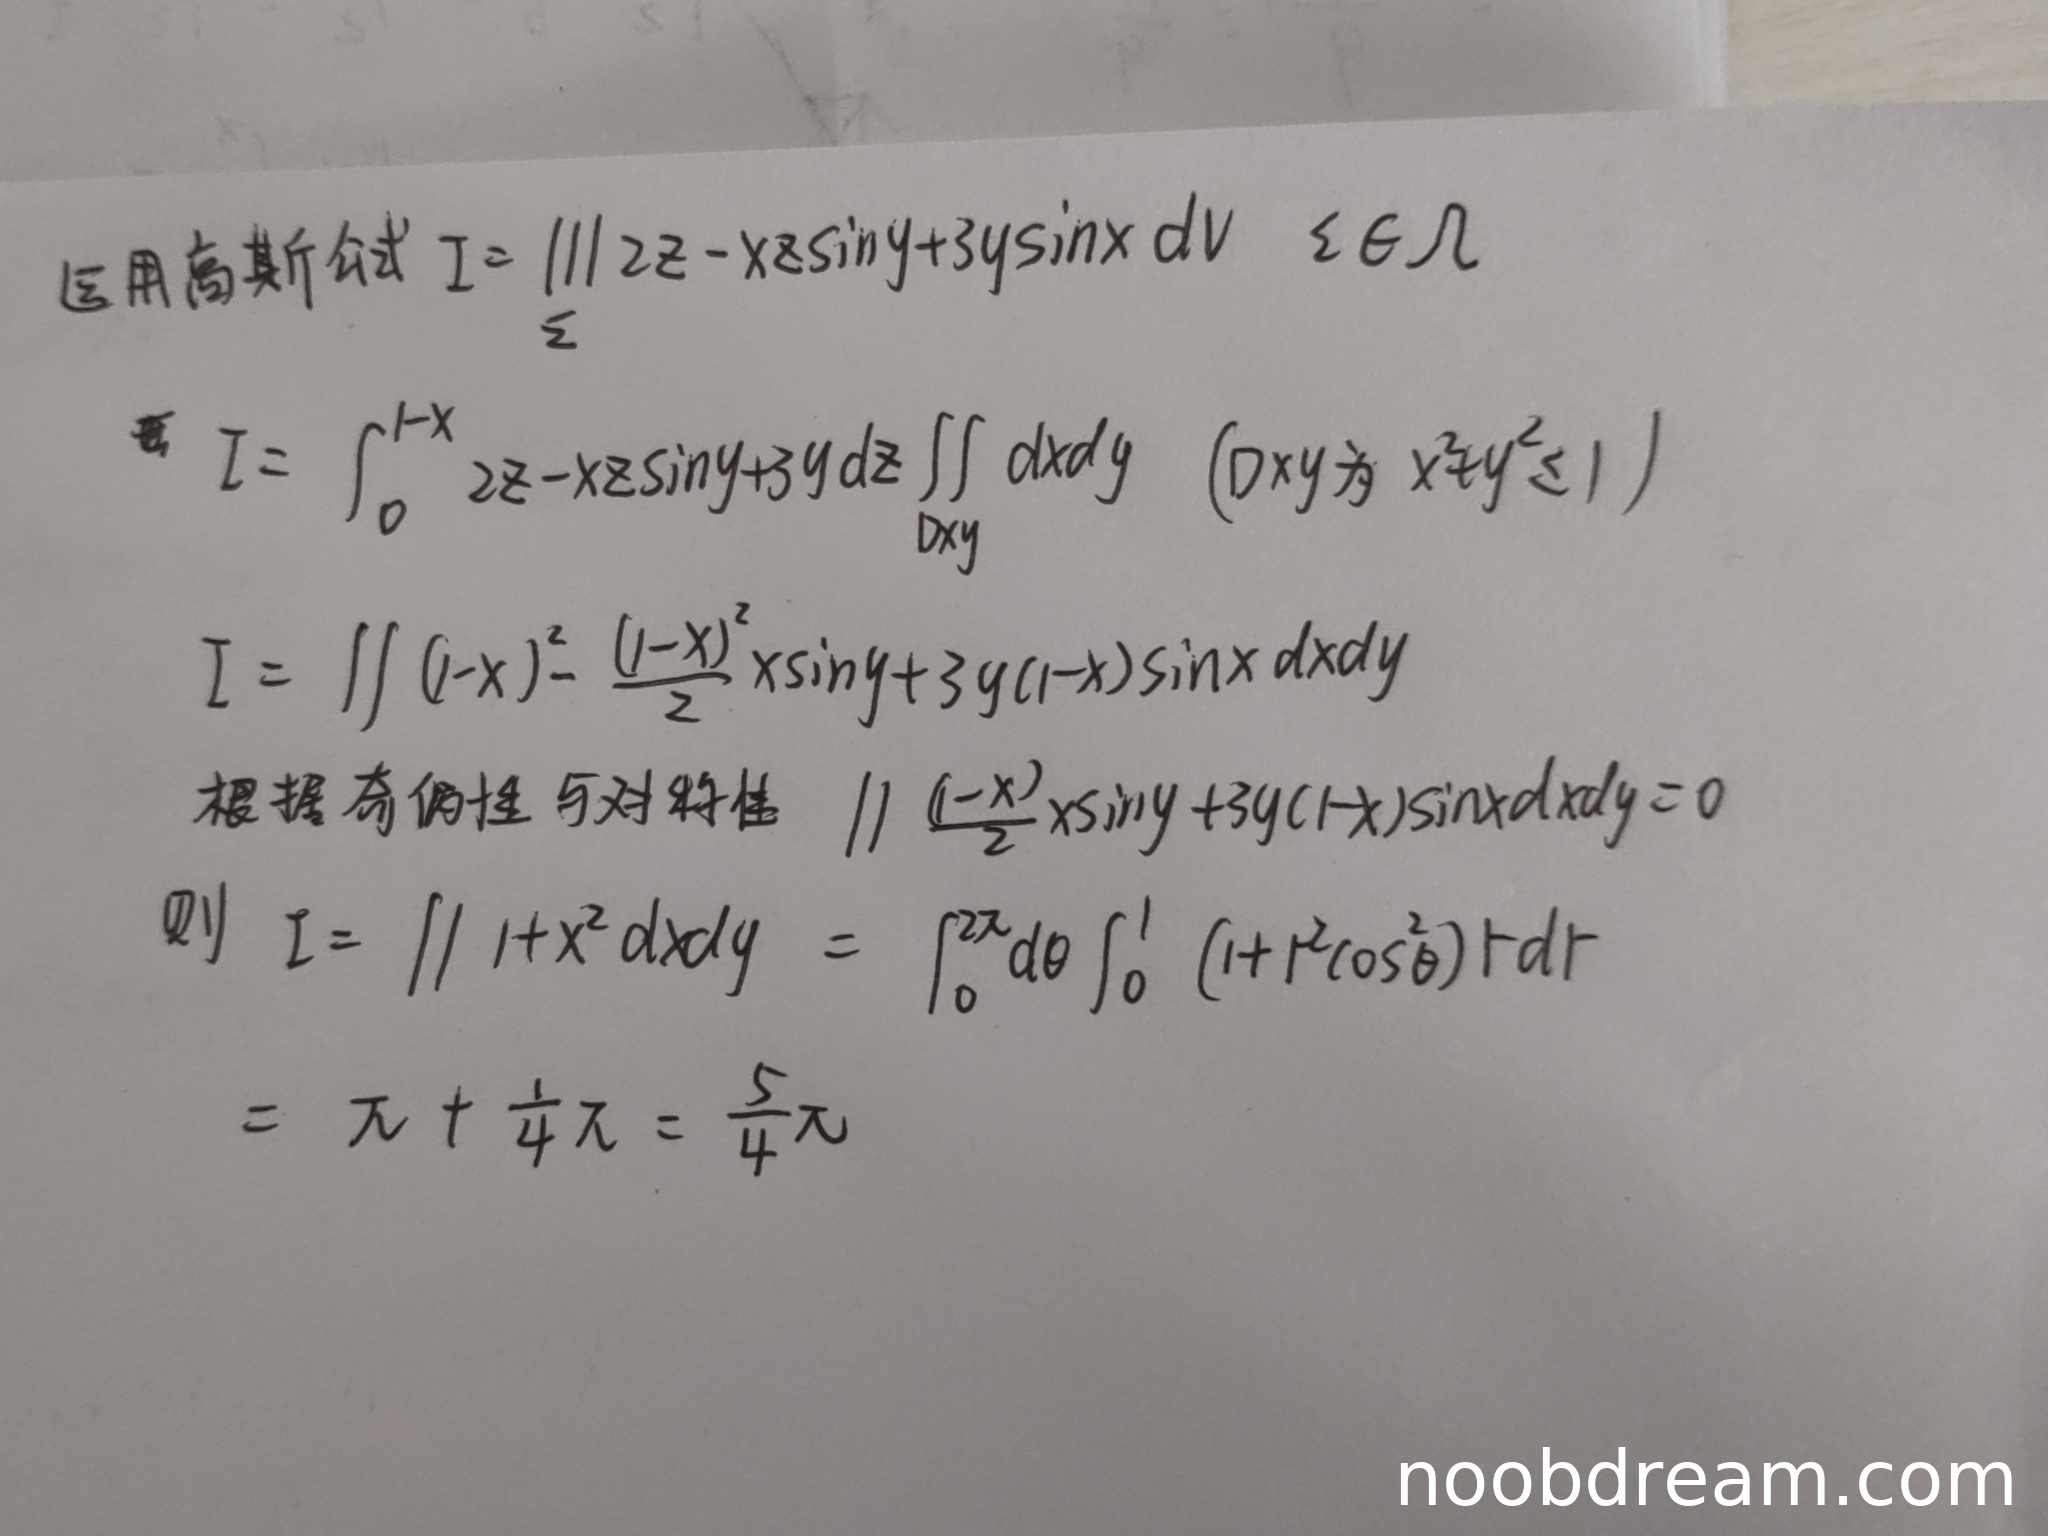 运用高斯公式 I = ∭_Σ 2z - xzsiny + 3ysinx dV Σ∈Ω
I = ∫_0^{1-x} 2z - xzsiny + 3y dz ∬_{Dxy} dxdy (Dxy为 x²+y²≤1)
I = ∬ (1-x)² - \frac{(1-x)²}{2} xsiny + 3y(1-x)sinx dxdy
根据奇偶性与对称性 ∬ \frac{(1-x)}{2} xsiny + 3y(1-x)sinxdxdy = 0
则 I = ∬ 1+x² dxdy = ∫_0^{2π} dθ ∫_0^1 (1+r²cos²θ) rdr
= π + \frac{1}{4}π = \frac{5}{4}π
noobdream.com